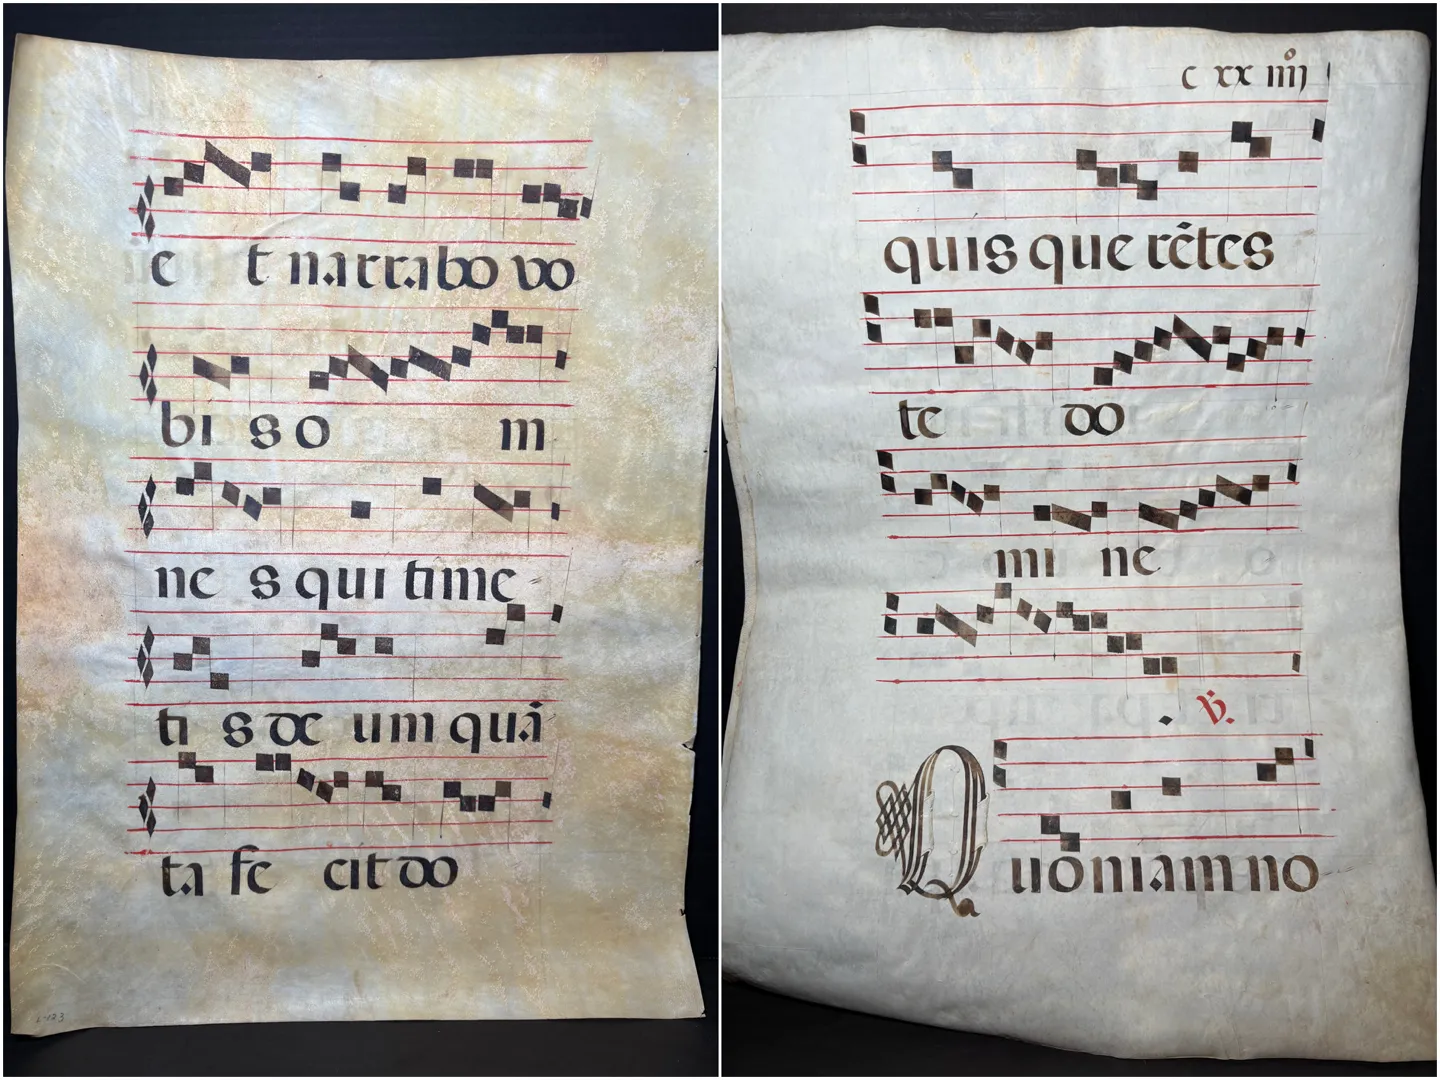 e t narrabo vo
bi s o m
ne s qui time
ti s de um quā
ta fe cit do
c xx iiijº
quis que rētes
te do
mi ne
℣.
Quōniam no